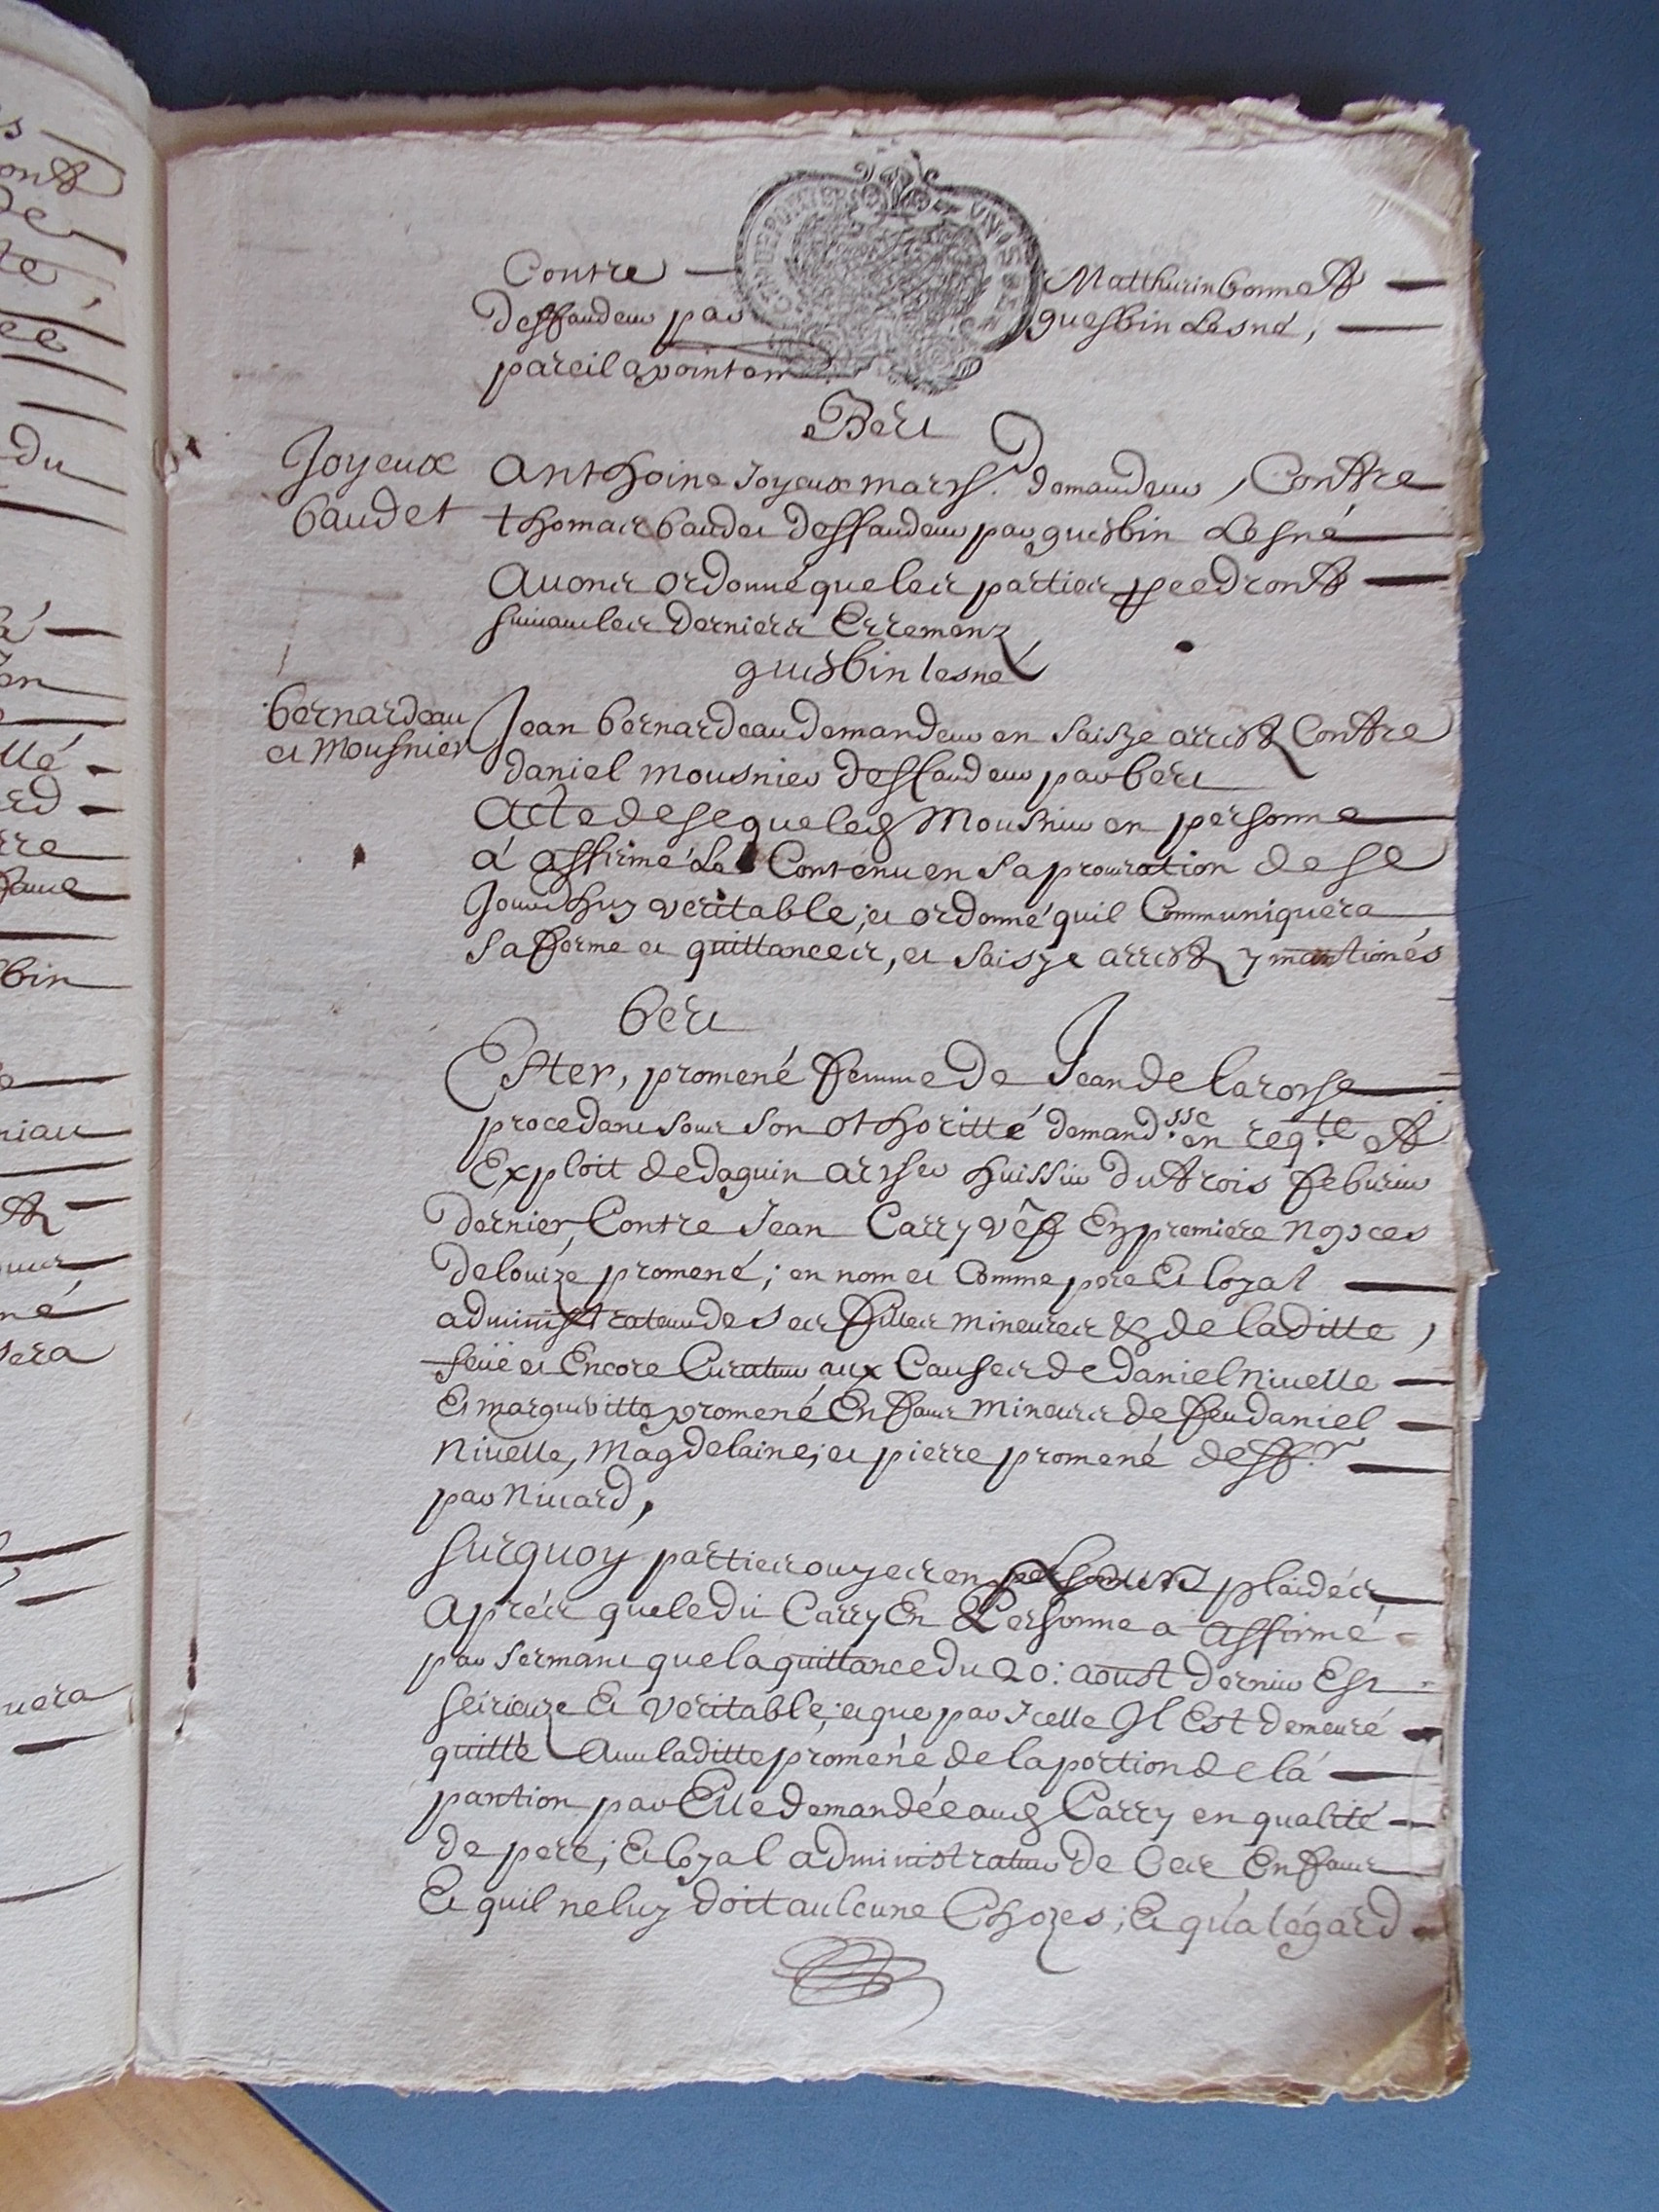 Contre — Matthurin bonnet —
deffandeur par guesbin Lesné, —
pareil apointem
Beri
Joyeux
baudet
Anthoine Joyeux march. demandeur, Contre
thomas baudet deffandeur par guesbin Lesné
Avons ordonné que les parties procedront —
suivant les derniers Erremens
guesbin lesné
bernardeau
et Mousnier
Jean bernardeau demandeur en saisye arrest Contre
daniel mousnier deffandeur par beri
Acte de se que led Mousnier en personne
à affirmé Le Contenu en sa procuration de se
Jourdhuy veritable; et ordonné quil Communiquera
sa ferme et quittances, et saisye arrest y mantionés
beri
Ester, promené femme de Jean de laroche
procedant sous son othoritté demandsse en reqte et
Exploit de daguin archer huissier du trois feburier
dernier, Contre Jean Carry vef En premiere nopces
de louize promené; en nom et Comme pere Et loyal
administrateur de ses filles mineures & de laditte,
feüe et Encore Curateur aux Causes de daniel Nivelle
Et margueritte promené Enfans mineurs de feu daniel
Nivelle, Magdelaine; et pierre promené deffrs
par Nivard,
surquoy parties ouyes en plaidés
Aprés que ledit Carry En Personne a affirmé
par sermant que la quittance du 20: aoust dernier Est
seirieuze Et veritable; et que par Icelle Il Est demeuré
quitte Avec laditte promené de la portion de lá
pantion par Elle demandée aud Carry en qualité
de pere; Et loyal administrateur de ces Enfans
Et quil ne luy doit aulcune Chozes; Et qu'a légard